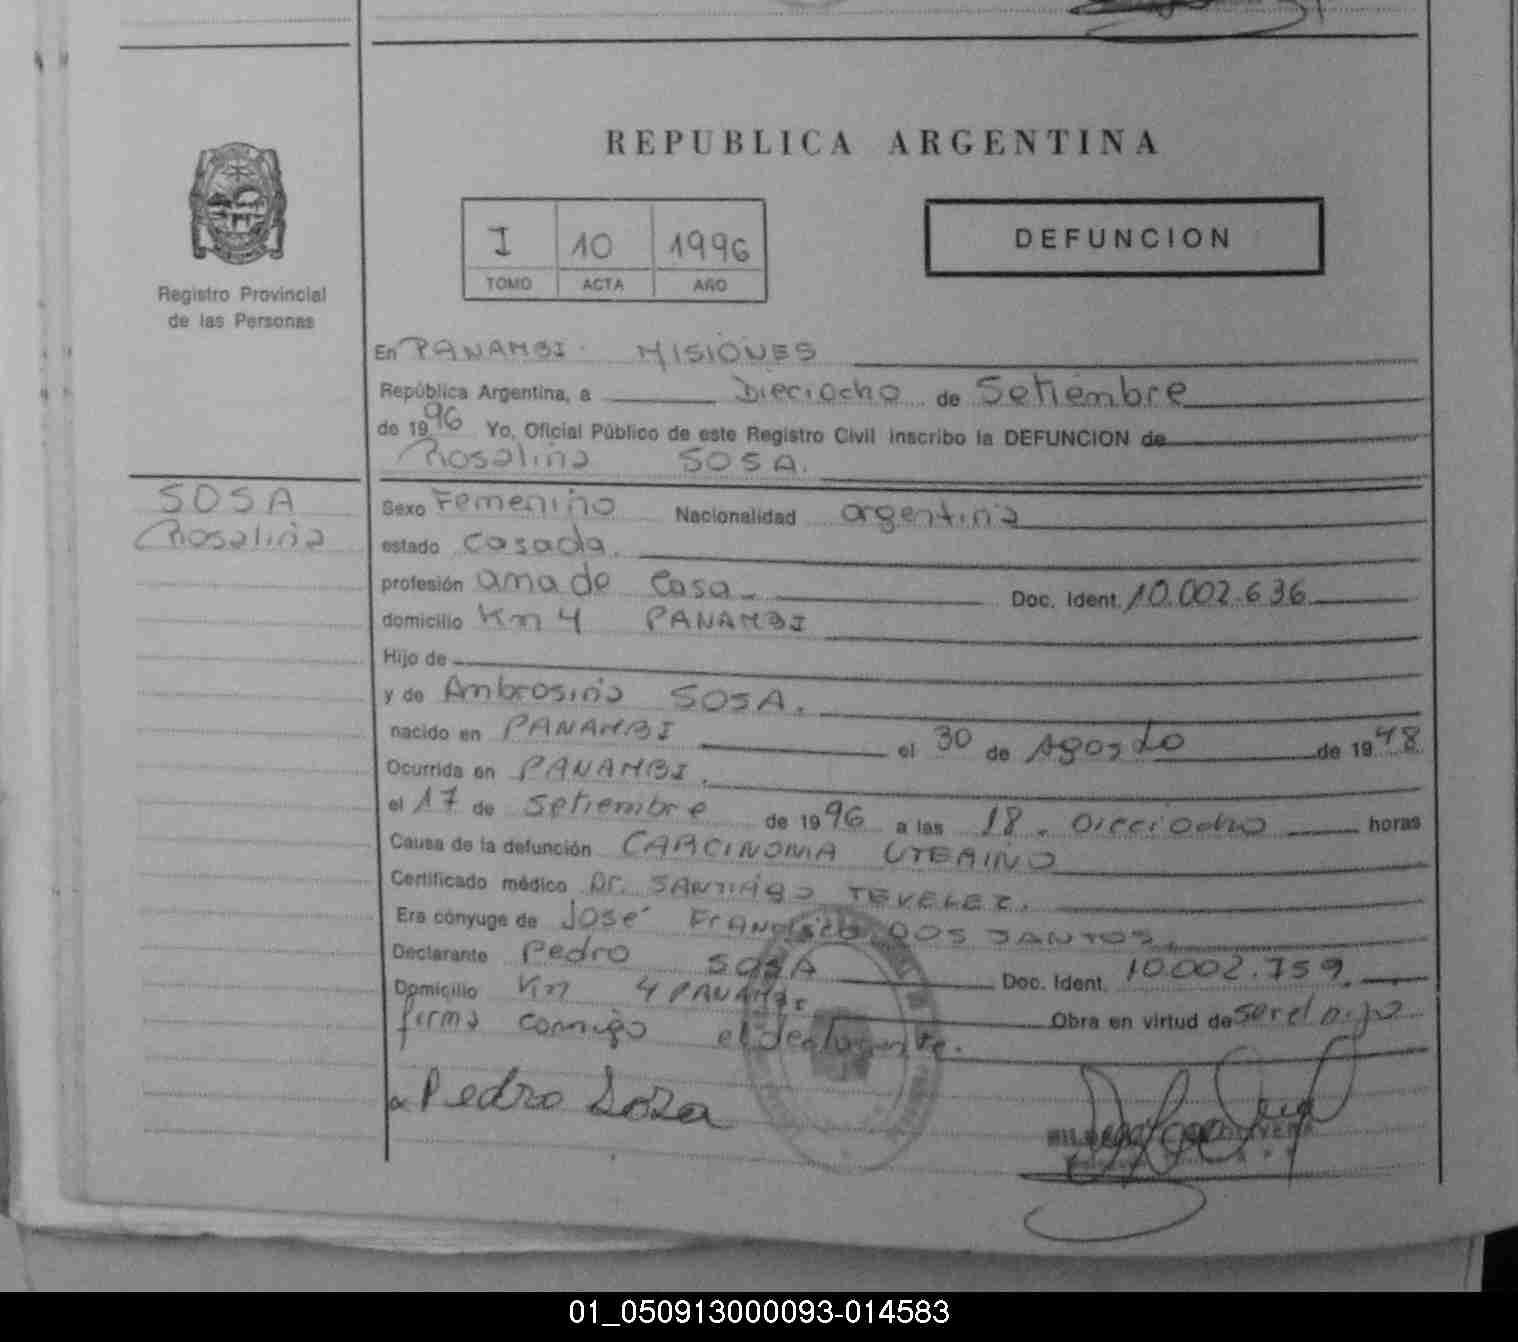 REPUBLICA ARGENTINA
I 10 1996
TOMO ACTA AÑO
DEFUNCION
Registro Provincial
de las Personas
En PANAMBI. MISIONES
República Argentina, a Dieciocho de Setiembre
de 1996 Yo, Oficial Público de este Registro Civil inscribo la DEFUNCION de
Rosalina SOSA.
SOSA
Rosalina
Sexo Femenino Nacionalidad argentina
estado casada.
profesión ama de Casa Doc. Ident. 10.002.636
domicilio Km 4 PANAMBI
Hijo de
y de Ambrosina SOSA.
nacido en PANAMBI el 30 de Agosto de 1948
Ocurrida en PANAMBI.
el 17 de Setiembre de 1996 a las 18. Dieciocho horas
Causa de la defunción CARCINOMA UTERINO
Certificado médico Dr. SANTIAGO TEVELEZ.
Era cónyuge de José Francisco DOS SANTOS.
Declarante Pedro SOSA Doc. Ident. 10.002.759.
Domicilio Km 4 PANAMBI Obra en virtud de ser el hijo
firma conmigo el declarante.
Pedro Sosa
01_050913000093-014583